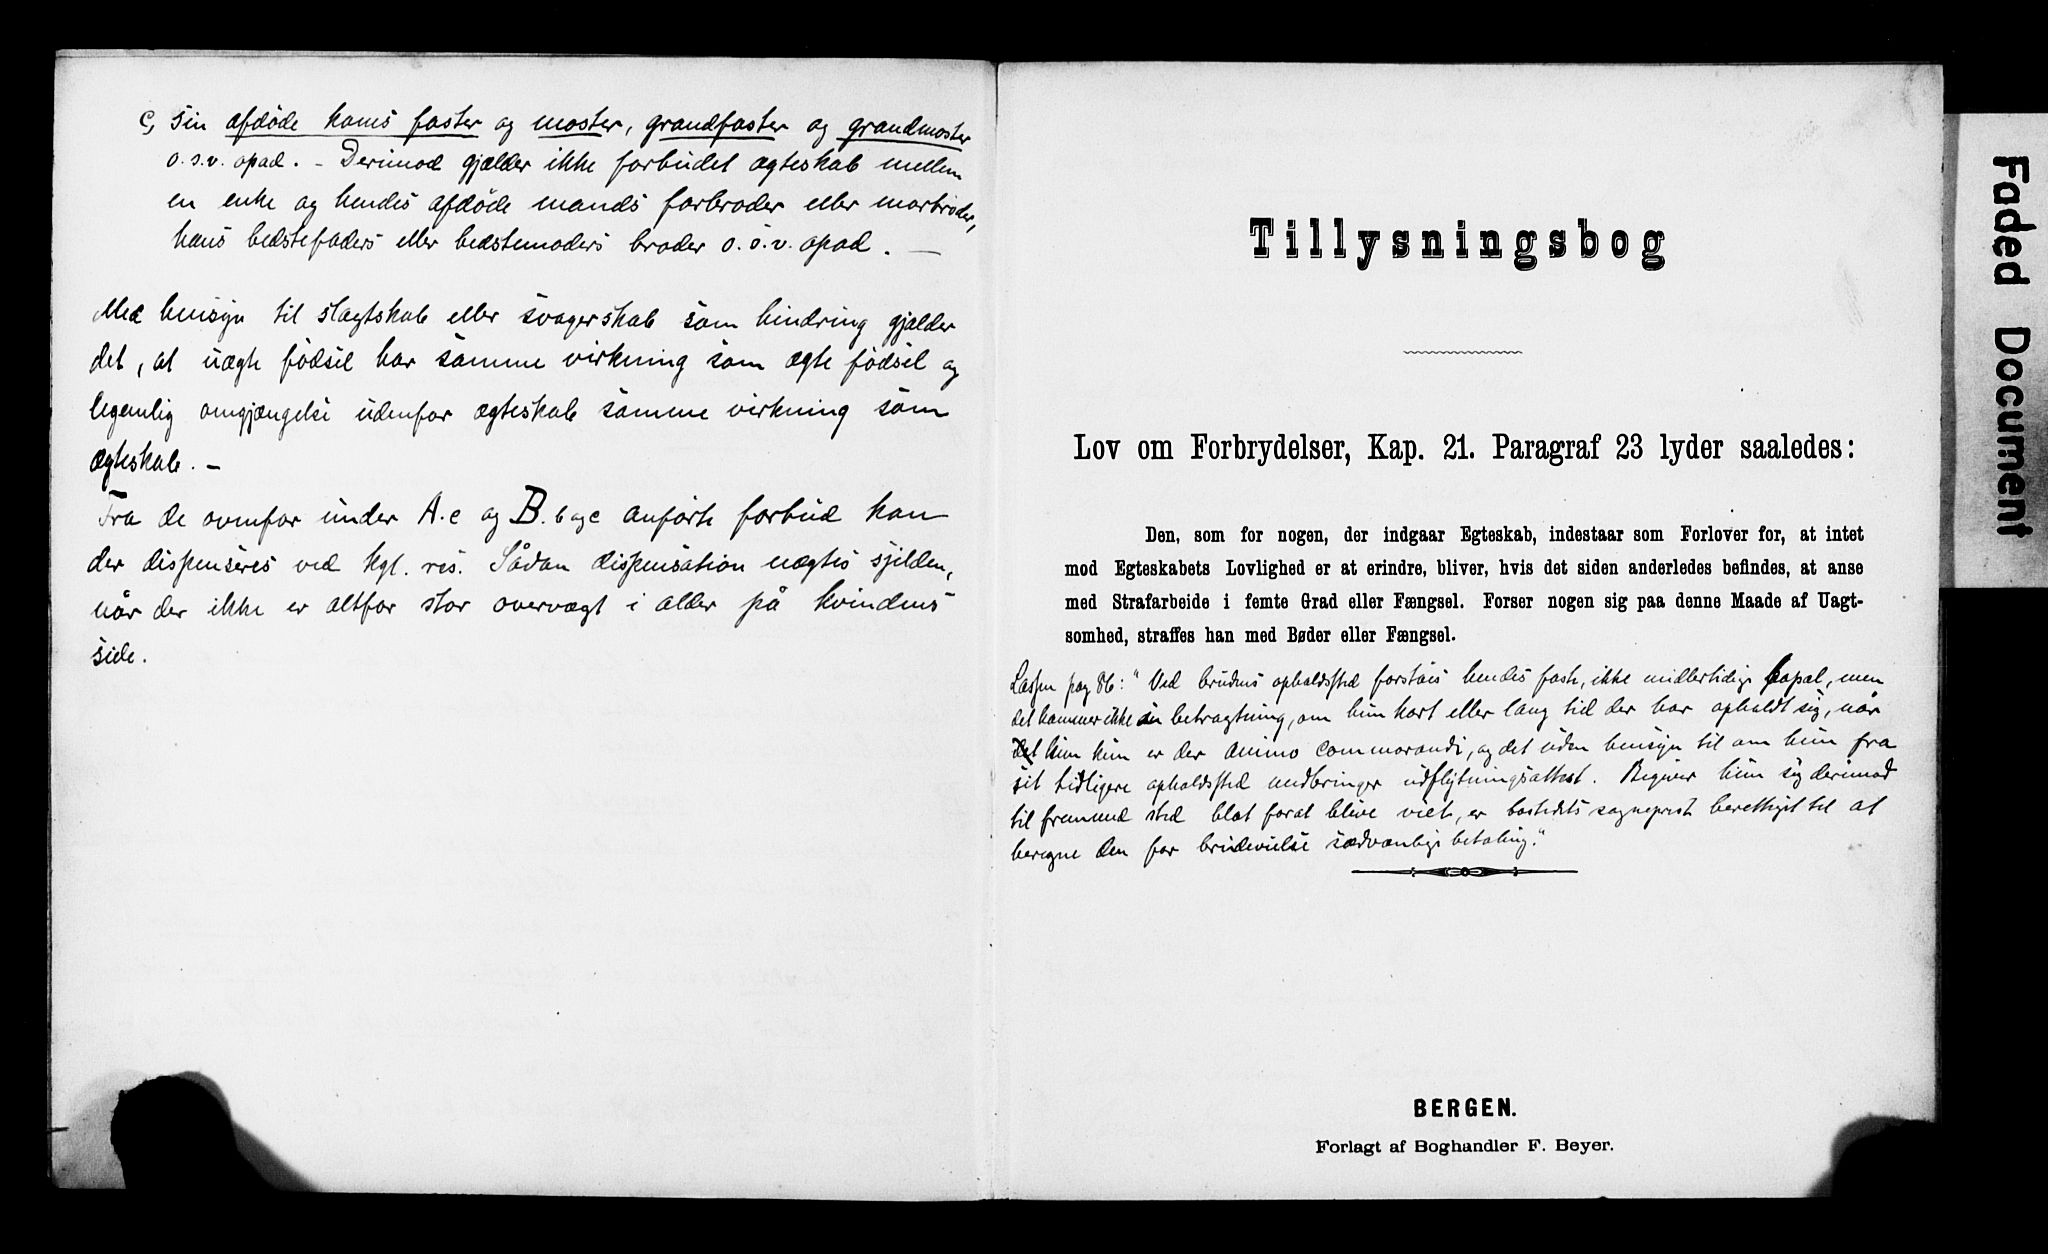 c, sin afdøde kones faster og moster, grandfaster og grandmoster
o.s.v. opad. - Derimod gjælder ikke forbudet ægteskab mellem
en enke og hendes afdøde mands farbroder eller morbroder,
hans bedstefaders eller bedstemoders broder o.s.v. opad. —
Med hensyn til slægtskab eller svogerskab som hindring gjælder
det, at uægte fødsel har samme virkning som ægte fødsel og
legemlig omgjængelse udenfor ægteskab samme virkning som
ægteskab. -
Fra de ovenfor under A.c og B.b og c anførte forbud kan
der dispenseres ved kgl. res. Sådan dispensation nægtes sjelden,
når der ikke er altfor stor overvægt i alder på kvindens
side.
Tillysningsbog
Lov om Forbrydelser, Kap. 21. Paragraf 23 lyder saaledes:
Den, som for nogen, der indgaar Egteskab, indestaar som Forlover for, at intet
mod Egteskabets Lovlighed er at erindre, bliver, hvis det siden anderledes befindes, at anse
med Strafarbeide i femte Grad eller Fængsel. Forser nogen sig paa denne Maade af Uagt-
somhed, straffes han med Bøder eller Fængsel.
Lassen pag 86: "Ved brudens opholdssted forståes hendes faste, ikke midlertidige bopæl, men
det kommer ikke i betragtning, om hun kort eller lang tid der har opholdt sig, når
det kun hun er der animo commorandi, og det uden hensyn til om hun fra
sit tidligere opholdssted medbringer udflytningsattest. Begiver hun sig derimod
til fremmed sted blot forat blive viet, er bostedets sogneprest berettiget til at
beregne den for brudevielse sædvanlige betaling."
BERGEN.
Forlagt af Boghandler F. Beyer.
Faded Document